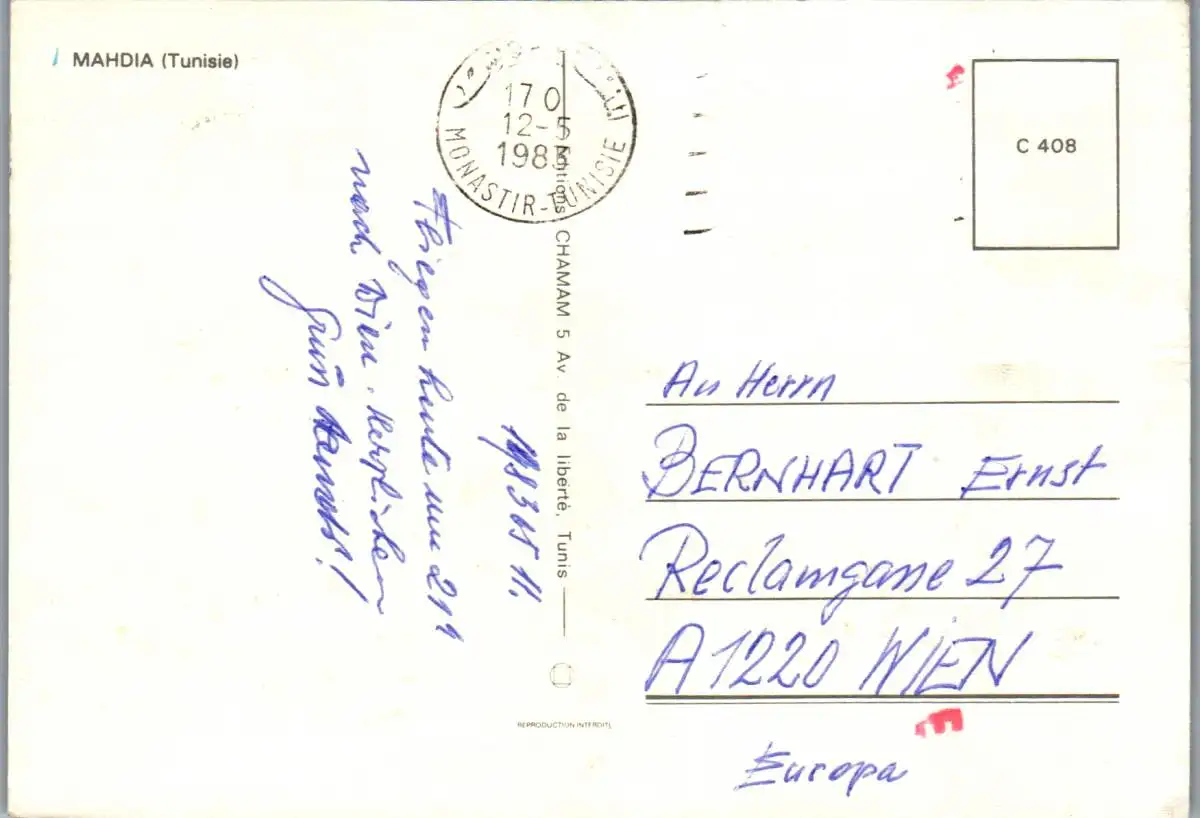 MAHDIA (Tunisie)
17 0
12-5
1983
MONASTIR-TUNISIE
Editions CHAMAM 5 Av. de la liberté, Tunis
C 408
1983 05 11.
Fliegen heute um 21h
nach Wien. Herzlichen
Gruß
An Herrn
BERNHART Ernst
Reclamgasse 27
A 1220 WIEN
Europa
REPRODUCTION INTERDITE